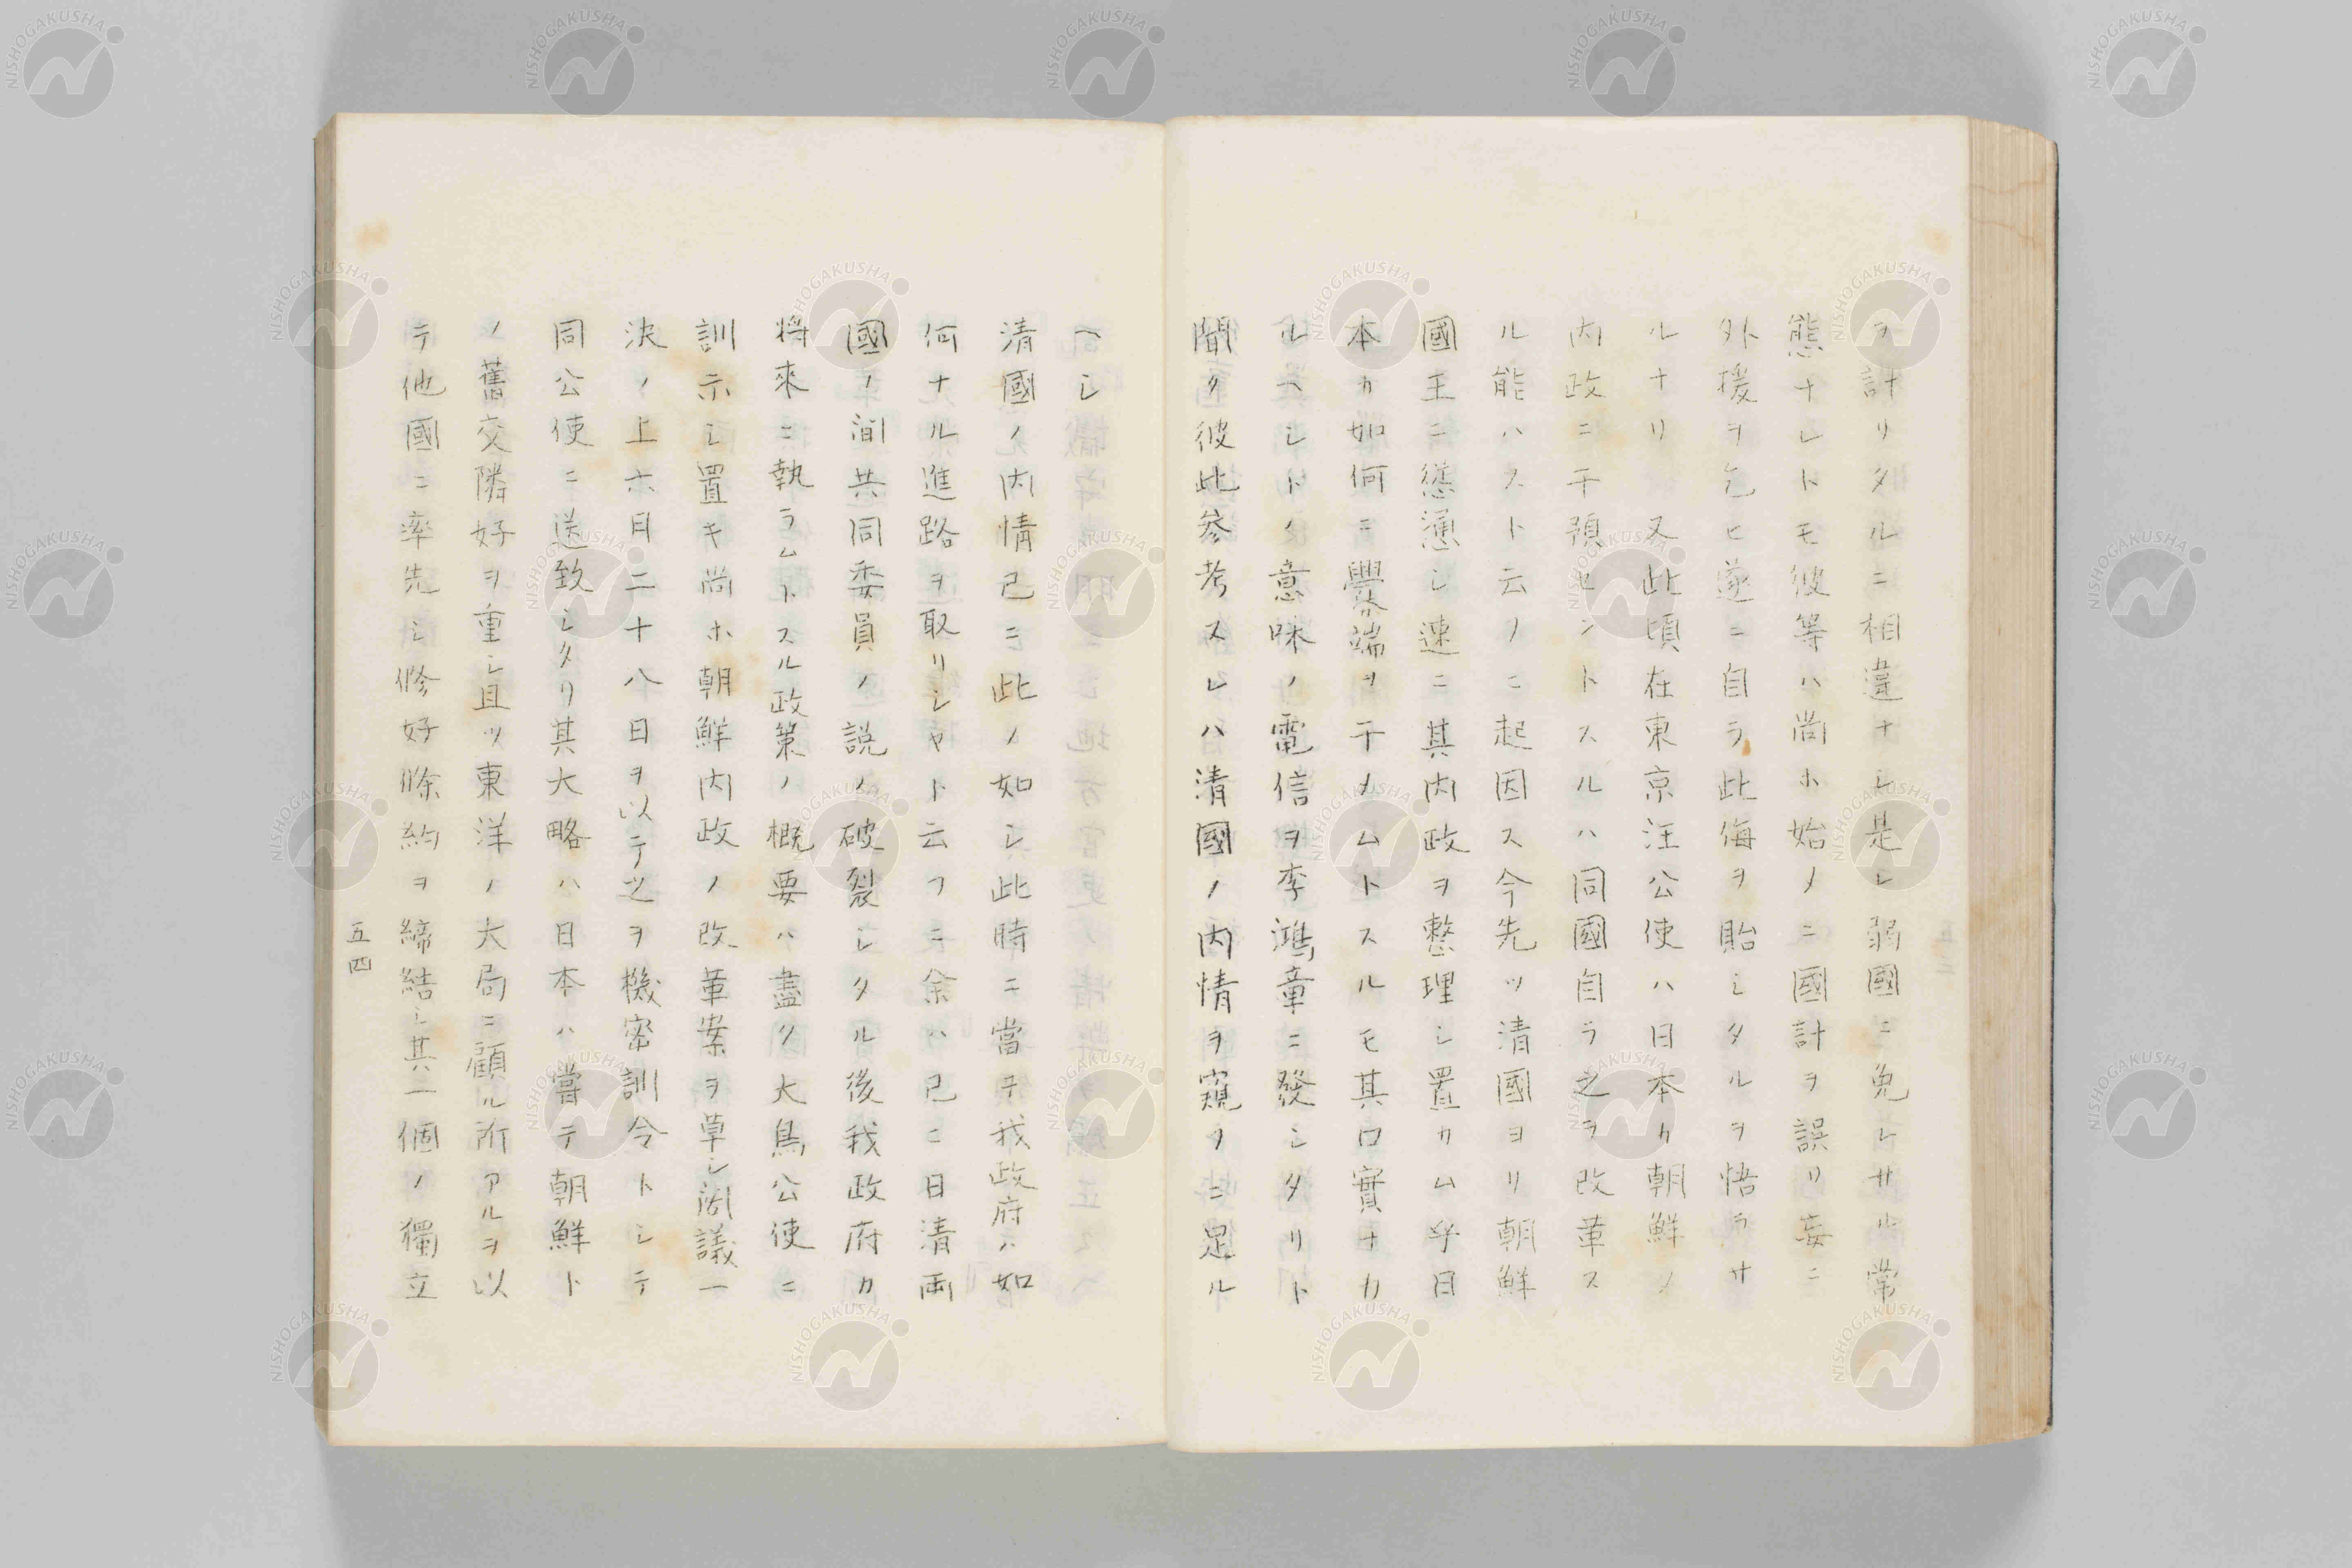 ヲ計リタルニ相違ナシ是レ弱國ニ免レサル常
態ナレトモ彼等ハ尚ホ始メニ國計ヲ誤リ妄ニ
外援ヲ乞ヒ遂ニ自ラ此侮ヲ貽シタルヲ悟ラサ
ルナリ 又此頃在東京汪公使ハ日本カ朝鮮ノ
内政ニ干預セントスルハ同國自ラ之ヲ改革ス
ル能ハスト云フニ起因ス今先ツ清國ヨリ朝鮮
國王ニ慫慂シ速ニ其内政ヲ整理シ置カム乎日
本カ如何ニ釁端ヲ干メムトスルモ其口實ナカ
ルヘシトノ意味ノ電信ヲ李鴻章ニ發シタリト
聞ク彼此參考スレハ清國ノ内情ヲ窺フニ足ル
ヘシ
清國ノ内情已ニ此ノ如シ此時ニ當テ我政府ハ如
何ナル進路ヲ取リシヤト云フニ余ハ已ニ日清両
國ノ間共同委員ノ説ノ破裂シタル後我政府カ
將來ニ執ラムトスル政策ノ概要ハ盡ク大鳥公使ニ
訓示シ置キ尚ホ朝鮮内政ノ改革案ヲ草シ閣議一
決ノ上六月二十八日ヲ以テ之ヲ機密訓令トシテ
同公使ニ送致シタリ其大略ハ日本ハ嘗テ朝鮮ト
ノ舊交隣好ヲ重シ且ツ東洋ノ大局ニ顧ル所アルヲ以
テ他國ニ率先シ修好條約ヲ締結シ其一個ノ獨立
五四
NISHOGAKUSHA